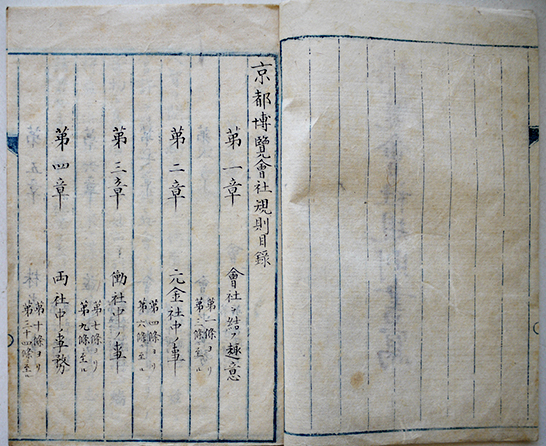 京都博覽會社規則目録
第一章　會社ヲ結フ趣意
第一條ヨリ
第三條ニ至ル
第二章　元金社中ノ事
第四條ヨリ
第六條ニ至ル
第三章　働社中ノ事
第七條ヨリ
第九條ニ至ル
第四章　両社中ノ事務
第十條ヨリ
第三十四條ニ至ル